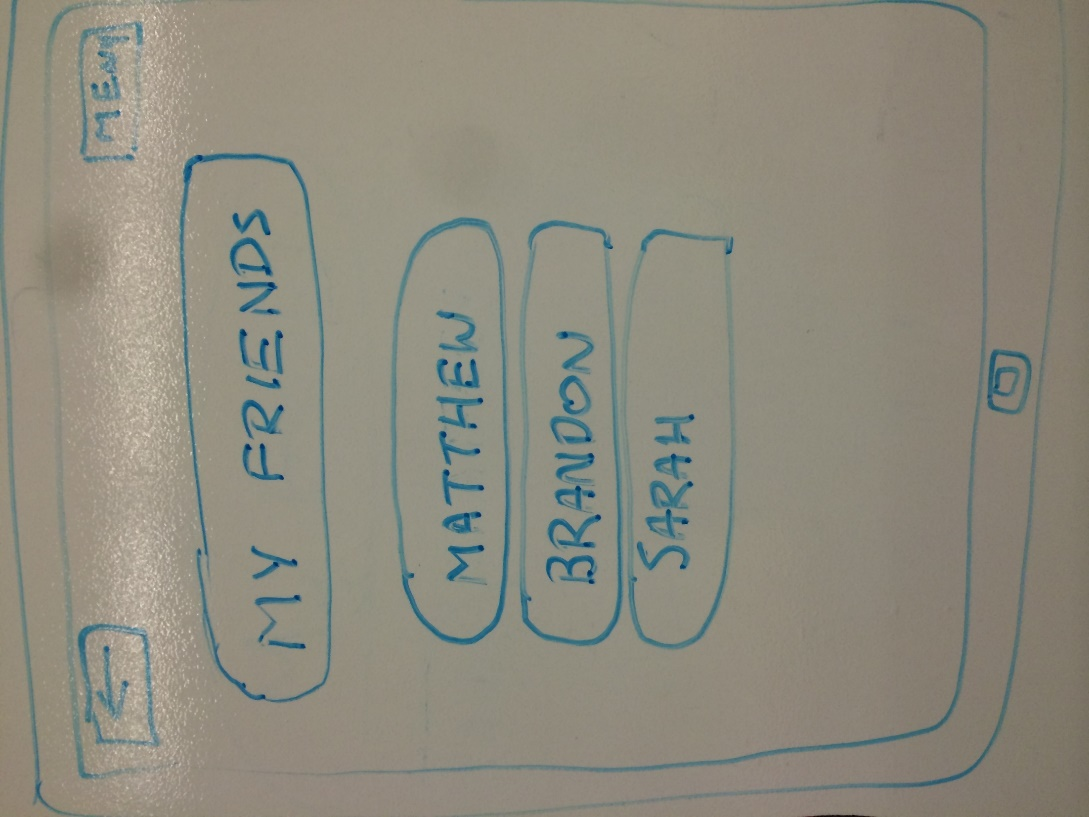 MENU
MY FRIENDS
MATTHEW
BRANDON
SARAH